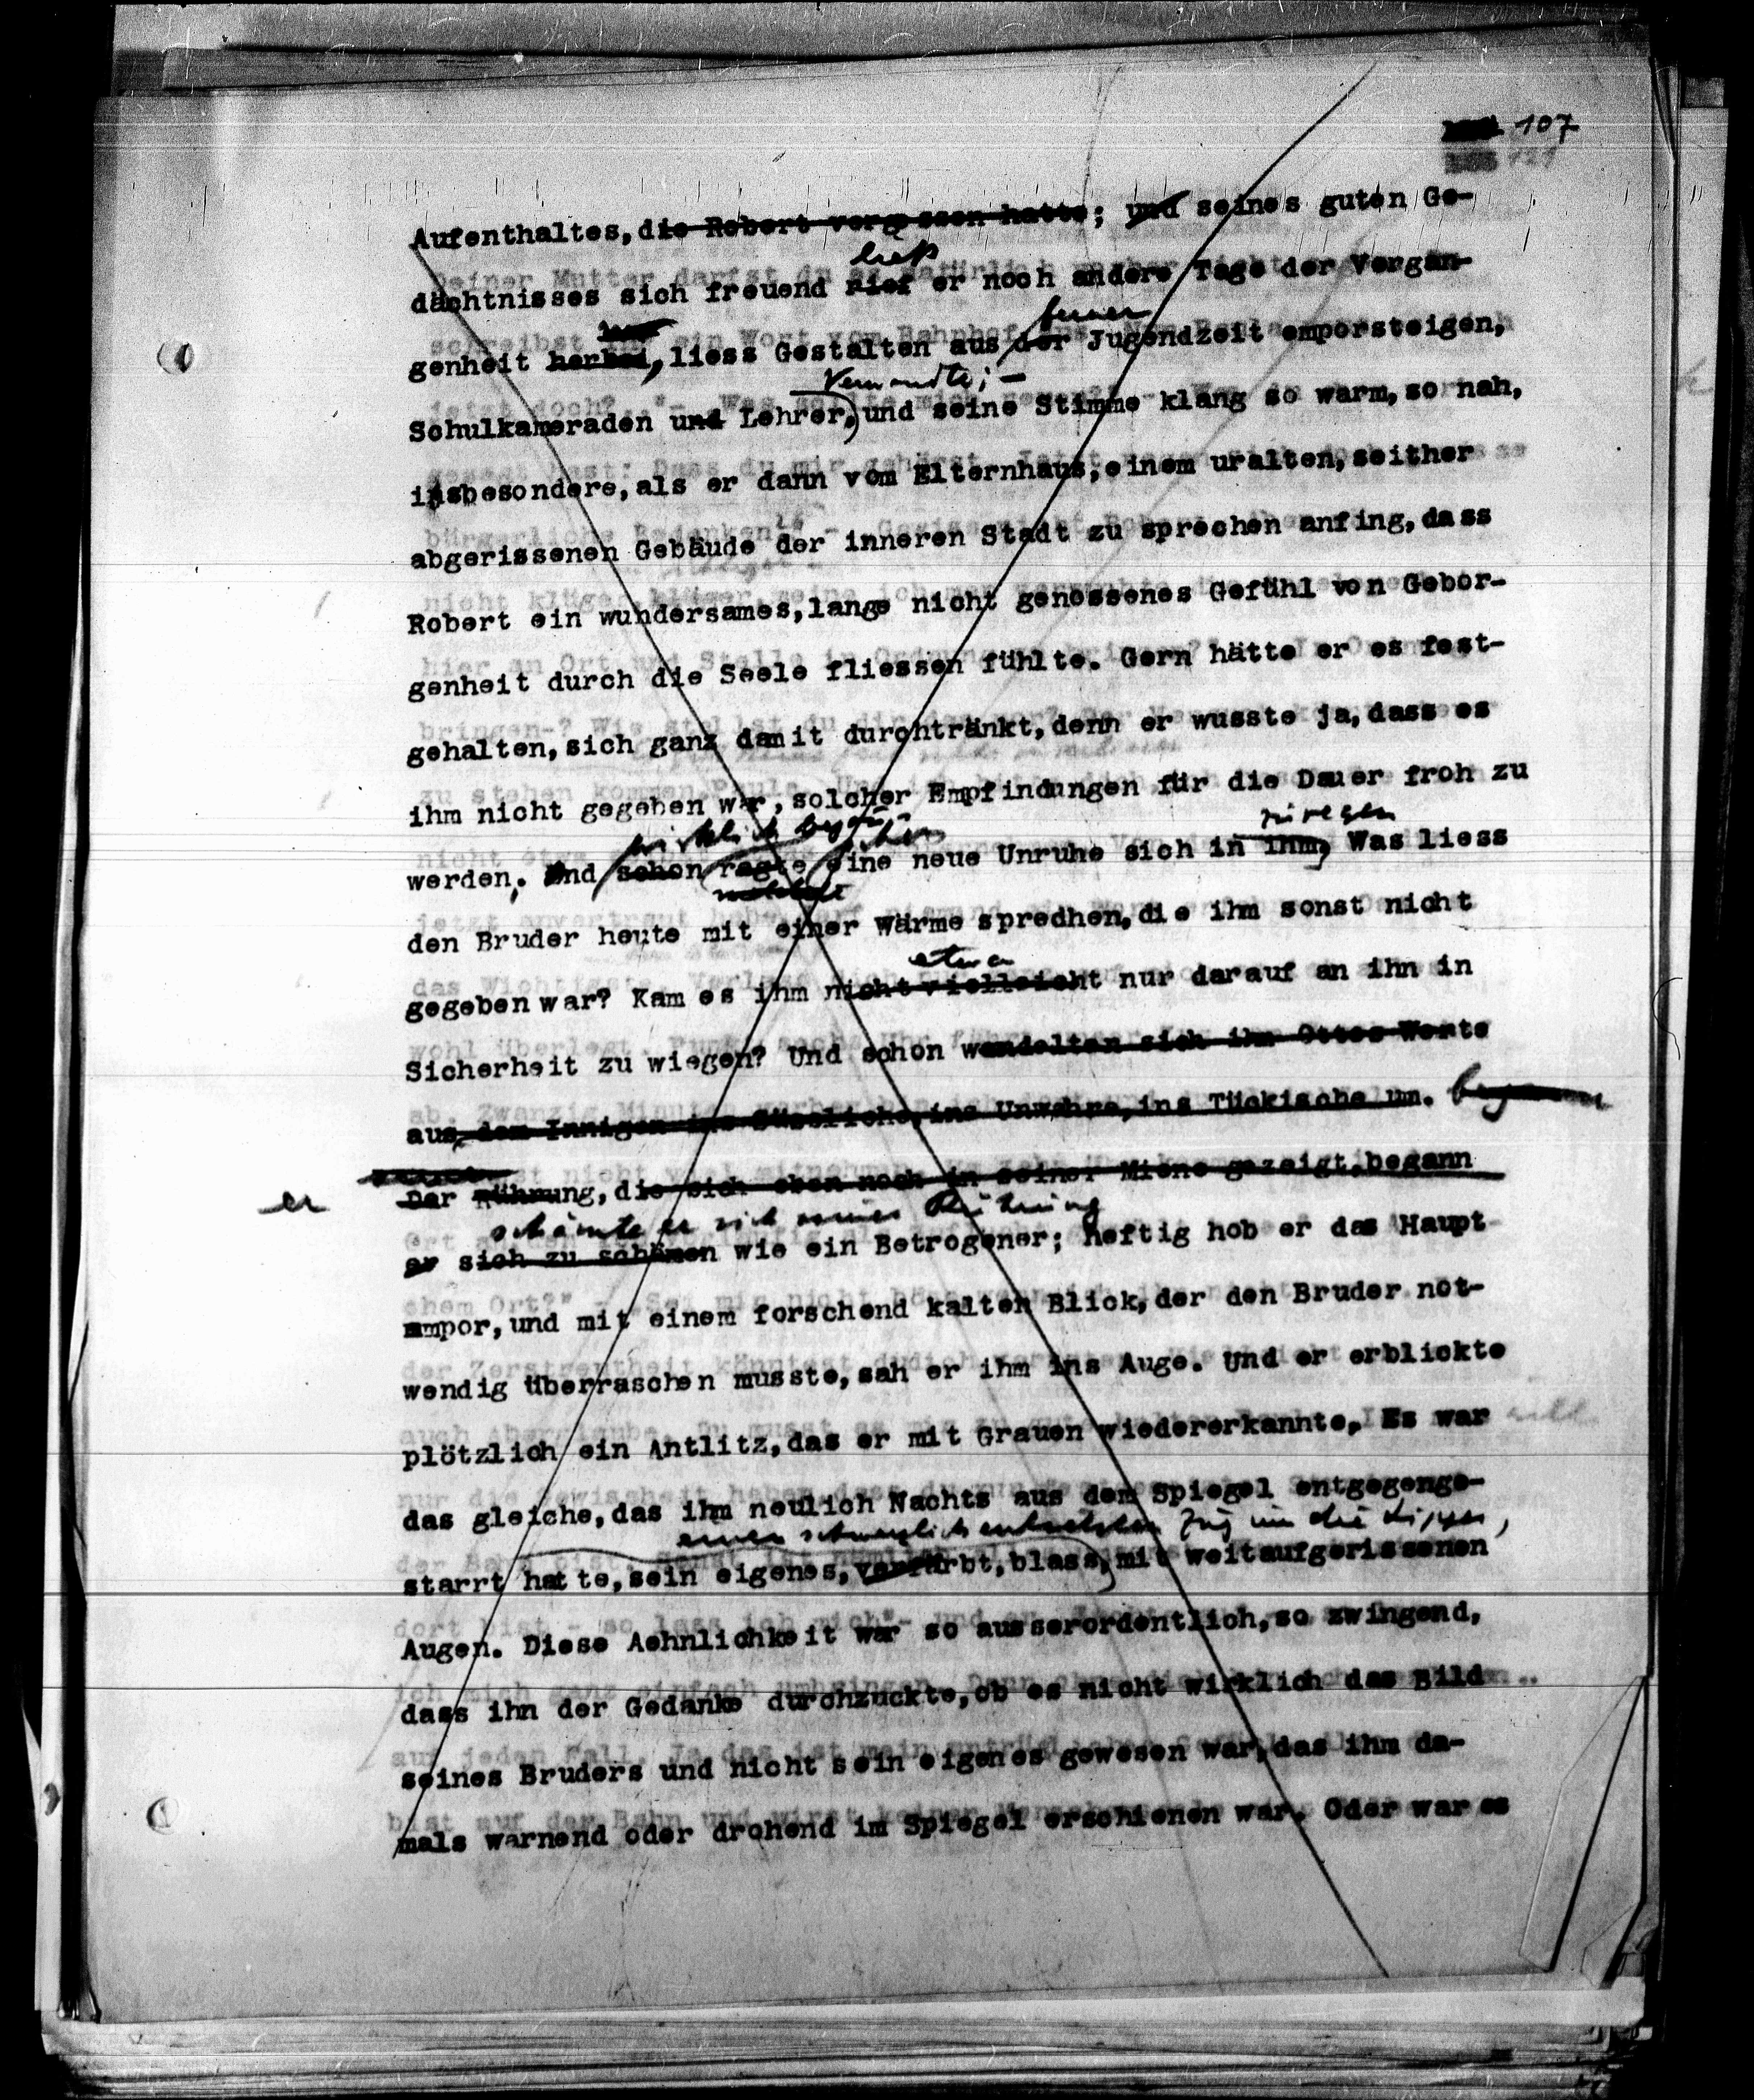 107
121
Aufenthaltes, die Robert vergessen hatte; und seines guten Ge-
ließ
dächtnisses sich freuend rief er noch andere Tage der Vergan-
ferner
genheit herbei, liess Gestalten aus der Jugendzeit emporsteigen,
Verwandte; –
Schulkameraden und Lehrer, und seine Stimme klang so warm, so nah,
insbesondere, als er dann vom Elternhaus, einem uralten, seither
abgerissenen Gebäude der inneren Stadt zu sprechen anfing, dass
Robert ein wundersames, lange nicht genossenes Gefühl von Gebor-
genheit durch die Seele fliessen fühlte. Gern hätte er es fest-
gehalten, sich ganz damit durchtränkt, denn er wusste ja, dass es
ihm nicht gegeben war, solcher Empfindungen für die Dauer froh zu
wirklich begann schon zu regen
werden. Und schon regte eine neue Unruhe sich in ihm, Was liess
den Bruder heute mit einer Wärme spredhen, die ihm sonst nicht
etwa
gegeben war? Kam es ihm nicht vielleicht nur darauf an ihn in
Sicherheit zu wiegen? Und schon wandelten sich ihm Ottos Worte
aus dem Innigen ins Süssliche, ins Unwahre, ins Tückische um. begann
er Der Rührung, die sich eben noch in seiner Miene gezeigt, begann
schämte er sich seiner Rührung
er sich zu schämen wie ein Betrogener; heftig hob er das Haupt
empor, und mit einem forschend kalten Blick, der den Bruder not-
wendig überraschen musste, sah er ihm ins Auge. Und er erblickte
plötzlich ein Antlitz, das er mit Grauen wiedererkannte. Es war
das gleiche, das ihm neulich Nachts aus dem Spiegel entgegenge-
einen schmerzlich entsetzten Zug um die Lippen,
starrt hatte, sein eigenes, verfärbt, blass, mit weitaufgerissenen
Augen. Diese Aehnlichkeit war so ausserordentlich, so zwingend,
dass ihn der Gedanke durchzuckte, ob es nicht wirklich das Bild
seines Bruders und nicht sein eigenes gewesen war, das ihm da-
mals warnend oder drohend im Spiegel erschienen war. Oder war es